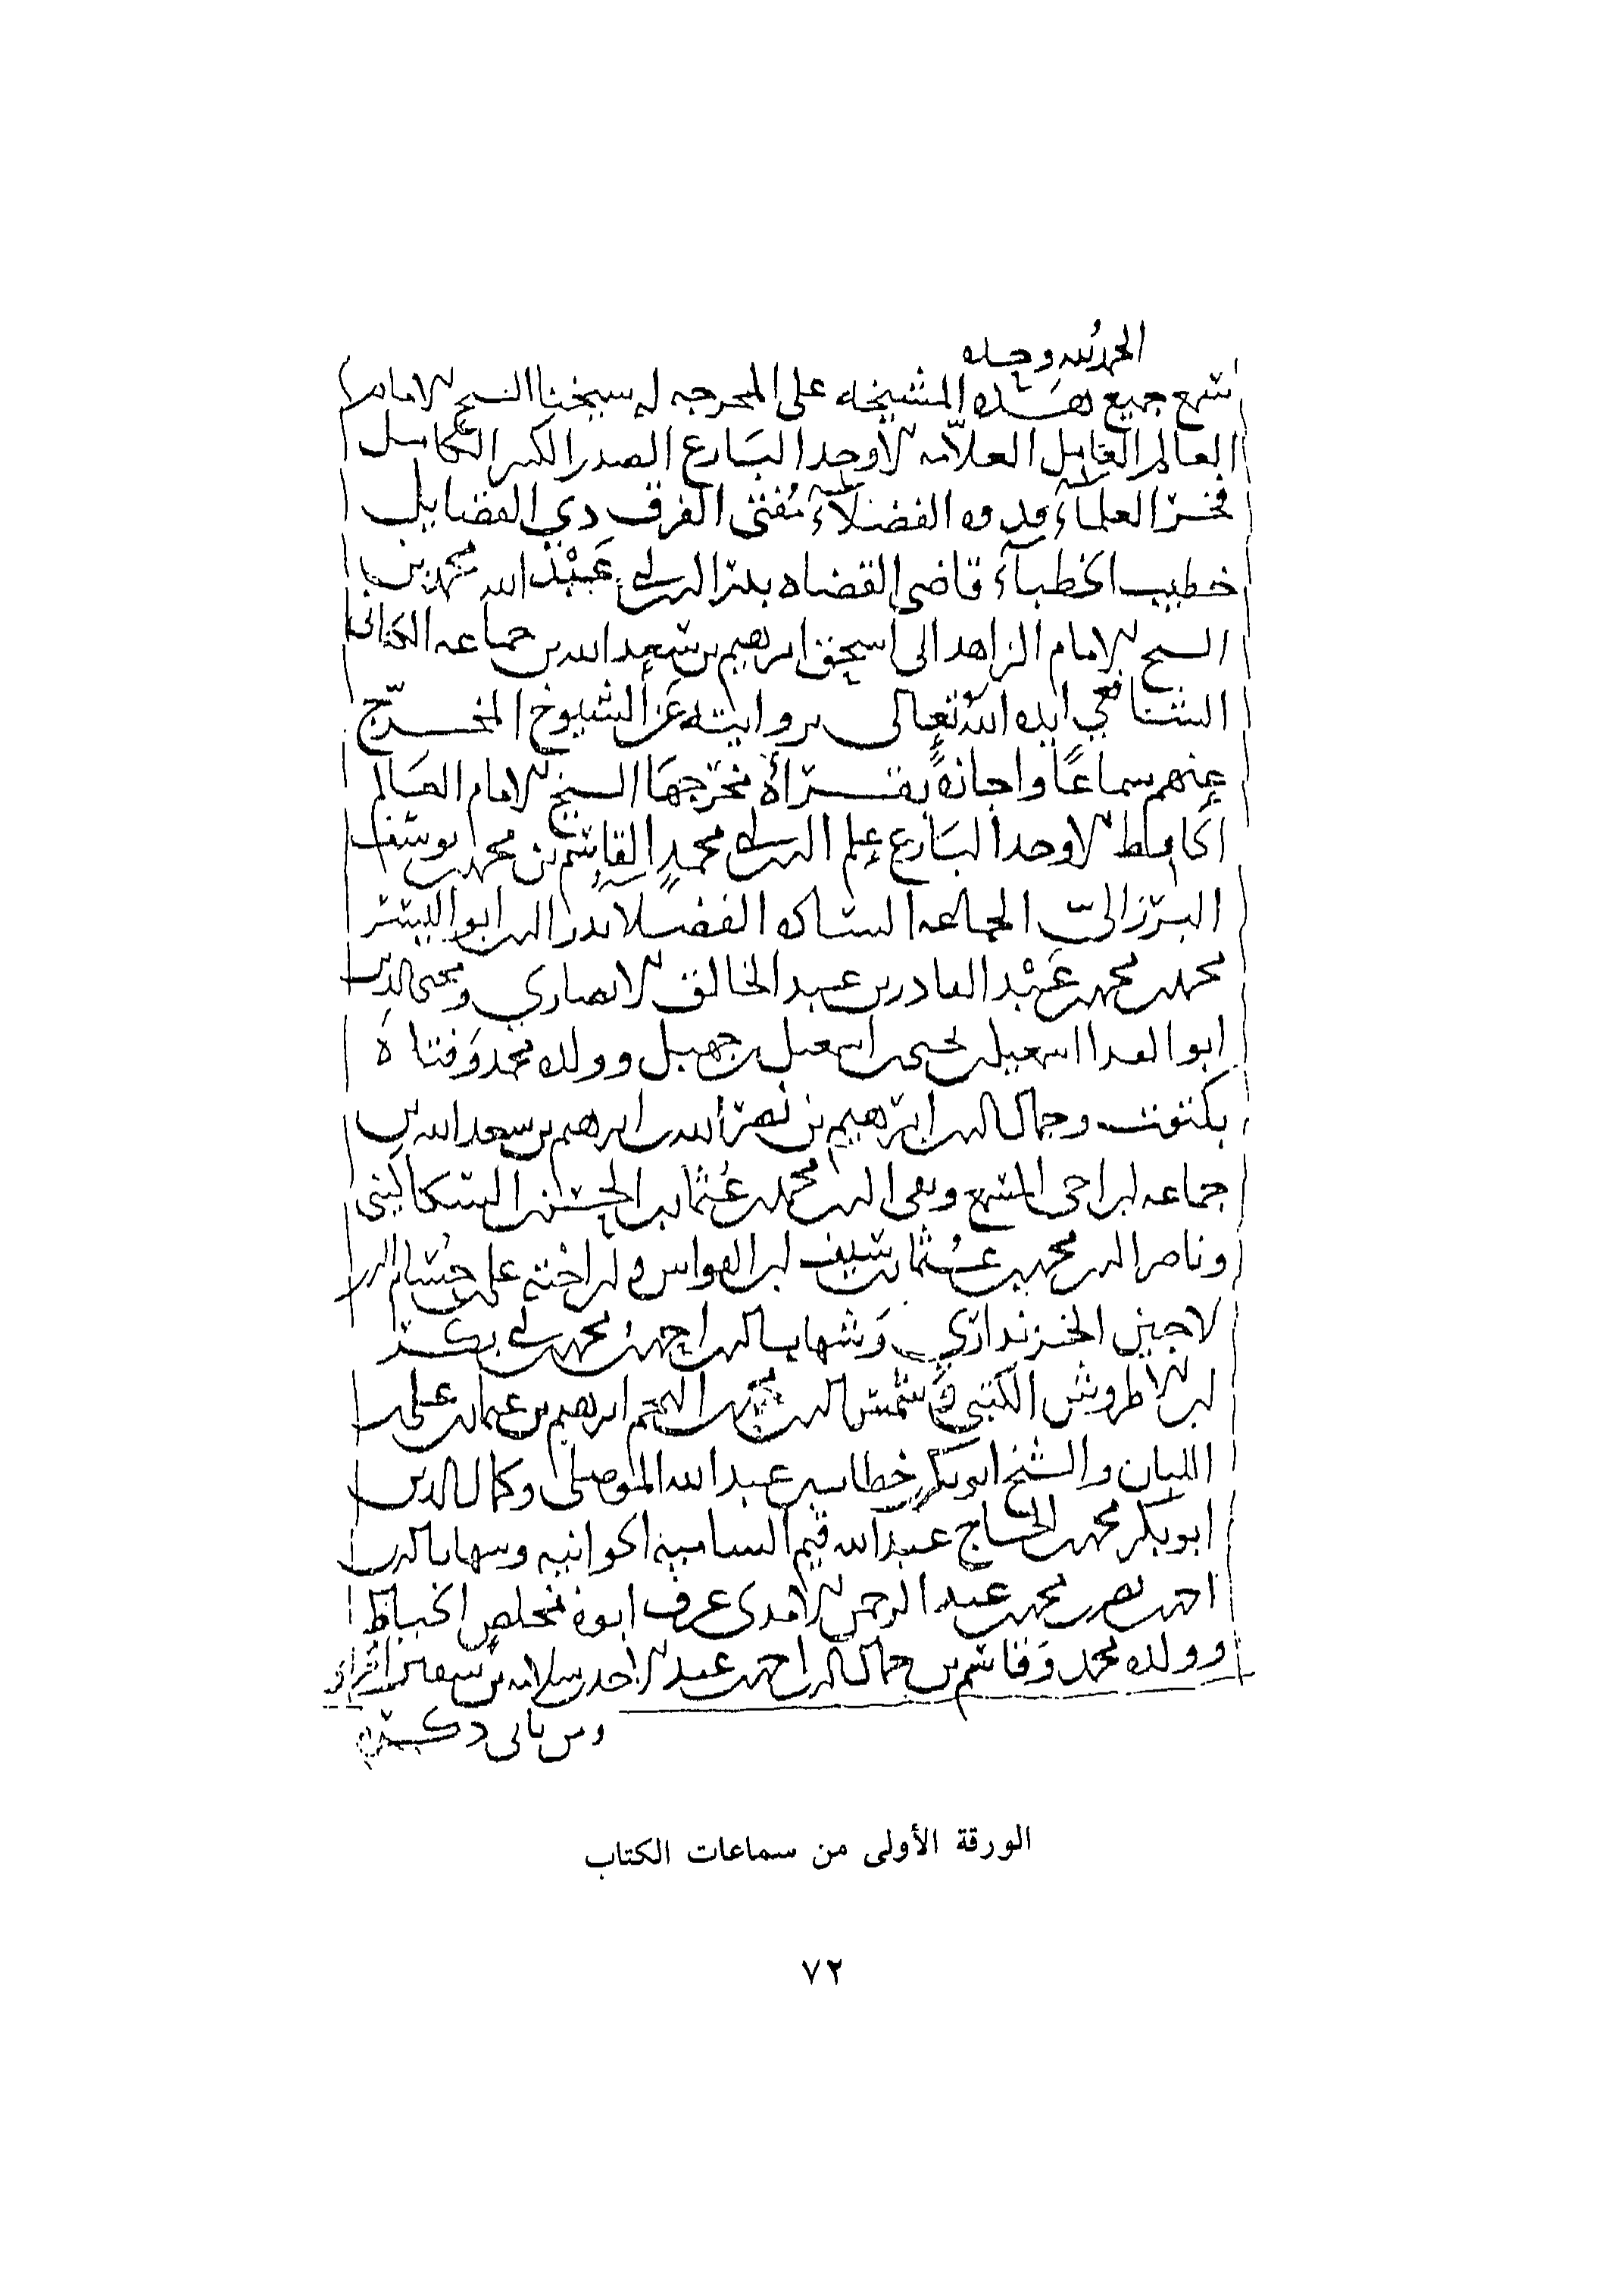 الحمد لله وحده
سمع جميع هذه المشيخه على المخرجه له سيخنا الشيخ الامام
العالم العامل العلامه الاوحد البارع الصدر الكبير الكامل
فخر العلماء قدوه الفضلاء مفتى الفرق ذي الفضايل
خطيب الخطباء قاضى القضاه بدر الدين ابي عبد الله محمد بن
السيخ الامام الزاهد ابى اسحق ابرهيم بن سعد الله بن جماعه الكنانى
الشافعي ايده الله تعالى بروايته عن الشيوخ المخرج
عنهم سماعا واجازه بقراءة مخرجها الشيخ الامام العالم
الحافظ الاوحد البارع علم الدين ابي محمد القاسم بن محمد بن يوسف
البرزالي الجماعه الساده الفضلا بدر الدين ابو اليسر
محمد بن محمد بن عبد القادر بن عبد الخالق الانصاري ومحيى الدين
ابو الفدا اسمعيل بن يحيى بن اسمعيل بن جهبل وولده محمد وفتاه
بكتوت وجمال الدين ابرهيم بن نصر الله بن ابرهيم بن سعد الله بن
جماعه ابن اخى المسمع وتقى الدين محمد بن عثمان بن الحسن السكاكينى
وناصر الدين محمد بن عثمان بن سيف ابن القواس وابن اخته على بن حسام الدين
لاجين الخزنداري وشهاب الدين احمد بن محمد بن ابي بكر
ابن الاطروش الكتبي وشمس الدين محمد بن النجم ابرهيم بن عثمان بن على بن
اللبان والشيخ ابو بكر بن خطاب بن عبد الله الموصلى وكمال الدين
ابو بكر بن محمد بن الحاج عبد الله قيم الشاميه الجوانيه وشهاب الدين
احمد بن نصر بن محمد بن عبد الرحمن الامدى عرف ابوه بمخلص الخياط
وولده محمد وقاسم بن جمال الدين احمد بن عبد الاحد بن سلامه بن
ومن يأتي ذكره
الورقة الأولى من سماعات الكتاب
٧٢